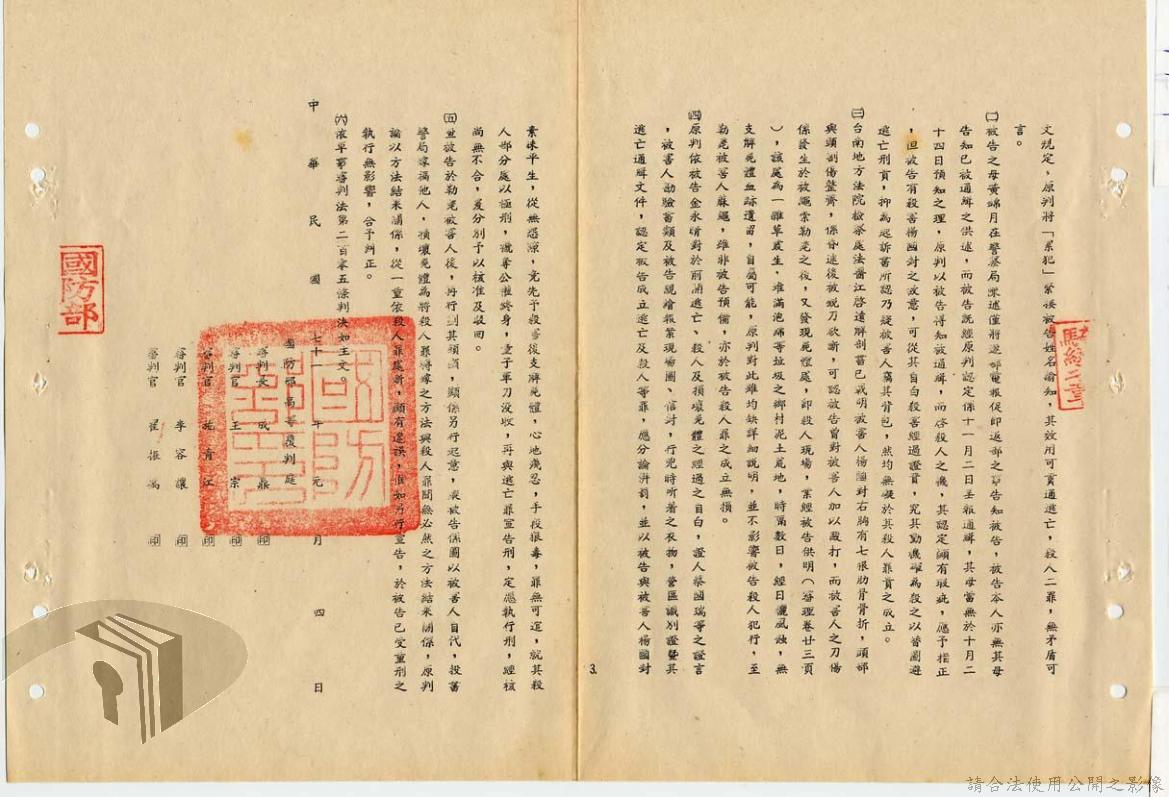 文規定，原判將「累犯」緊接被告姓名諭知，其效用可貫通逃亡，殺人二罪，無矛盾可
言。
㈡被告之母黃綿月在警察局
告知已被通緝之供述，而被告既經原判認定係十一月二日呈報通緝，其母當無於十月二
十四日預知之理，原判以被告得知被通緝，而啓殺人之機，其認定頗有瑕疵，應予指正
，但被告有殺害楊國封之故意，可從其自白殺害經過證實，究其動機確為殺之以替圖避
逃亡刑責，抑為起訴書所認乃疑被害人竊其背包，然均無礙於其殺人罪責之成立。
㈢台南地方法院檢察處法醫江啓遠解剖書已載明被害人楊國封右胸有七根肋骨骨折，頭部
與頸割傷整齊，係分遠後被銳刀砍斷，可認被告曾對被害人加以毆打，而被害人之刀傷
係發生於被繩索勒斃之後，又發現屍體處，即殺人現場，業經被告供明（審理卷廿三頁
），該處為一雜草叢生，堆滿泡綿等垃圾之鄉村泥土荒地，時隔數日，經日曬風蝕，無
支解屍體血跡遺留，自屬可能，原判對此雖均缺詳細說明，並不影響被告殺人犯行，至
勒斃被害人麻繩，雖非被告預備，亦於被告殺人罪之成立無損。
㈣原判依被告金永睛對於前開逃亡、殺人及損壞屍體之經過之自白，證人蔡國瑞等之證言
，被害人勘驗
逃亡通緝文件，認定被告成立逃亡及殺人等罪，應分論併罰，並以被告與被害人楊國封
3.
素昧平生，從無恩怨，竟先予殺害後支解屍體，心地殘忍，手段狠毒，罪無可逭，就其殺
人部分處以極刑，褫奪公權終身，童子軍刀沒收，再與逃亡罪宣告刑，定應執行刑，經核
尚無不合，爰分別予以核准及敘回。
㈤至被告於勒斃被害人後，再行割其頭顱，顯係另行起意，
警局嫁禍他人，損壞屍體為將殺人罪將嫁之方法與殺人罪間無必然之方法結果關係，原判
論以方法結果關係，從一重依殺人罪處斷，顯有違誤，惟如另行宣告，於被告已受重刑之
執行無影響，合予糾正。
㈥依軍事審判法第二百零五條判決如主文。
中華民國七十一年元月四日
國防部高等覆判庭
審判長 成 鼎 印
審判官 王 宗 印
審判官 施青江 印
審判官 李容讓 印
審判官 崔振
國防部
請合法使用公開之影像